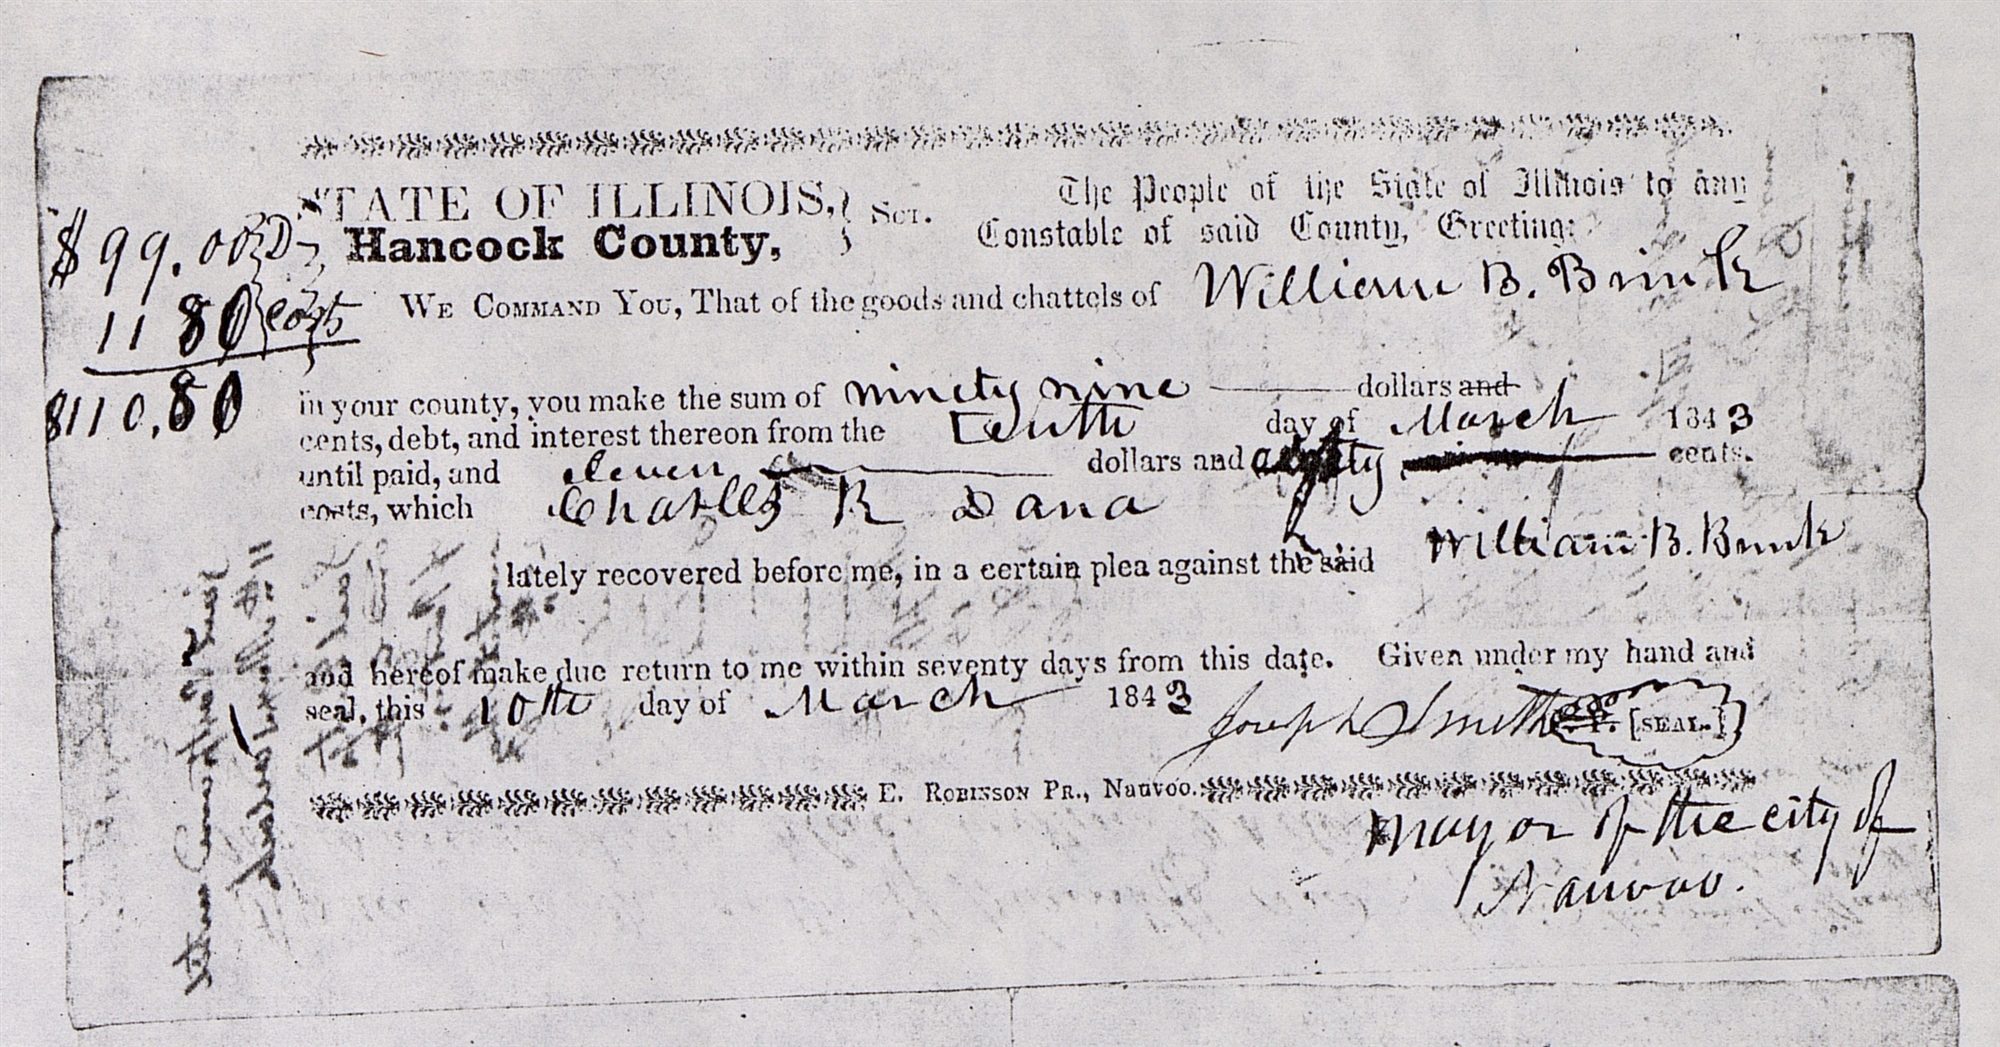 STATE OF ILLINOIS,
Hancock County,
Sct.
The People of the State of Illinois to any
Constable of said County, Greeting:
$99.00 D
11 80 costs
$110.80
We Command You, That of the goods and chattels of William B. Brink
in your county, you make the sum of ninety nine dollars and
cents, debt, and interest thereon from the Tenth day of March 1843
until paid, and eleven dollars and eighty cents.
costs, which Charles R Dana
lately recovered before me, in a certain plea against the said William B. Brink
and hereof make due return to me within seventy days from this date. Given under my hand and
seal, this 10th day of March 1843 Joseph Smith [SEAL.]
E. Robinson Pr., Nauvoo.
Mayor of the city of
Nauvoo.